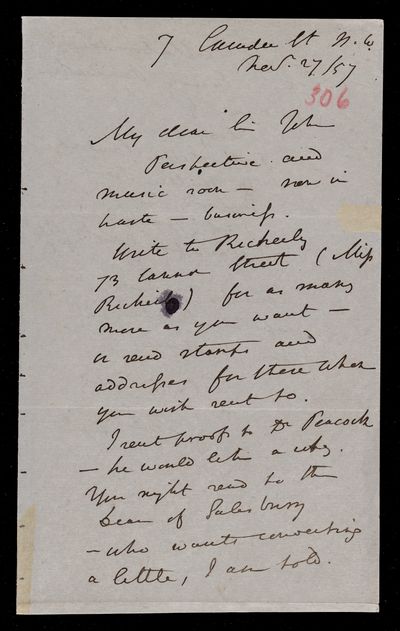 7 Camden St N.W.
Nov. 27/57
306
My dear Sir John
Perspective and
music soon — now in
haste — business.
Write to Richerly
73 Cannon Street (Miss
) for as many
more as you want —
or send stamps and
addresses for those whom
you wish sent to.
I sent proofs to Dr Peacock
— he would like a copy.
You might send to the
Dean of Salisbury
— who wants converting
a little, I am told.